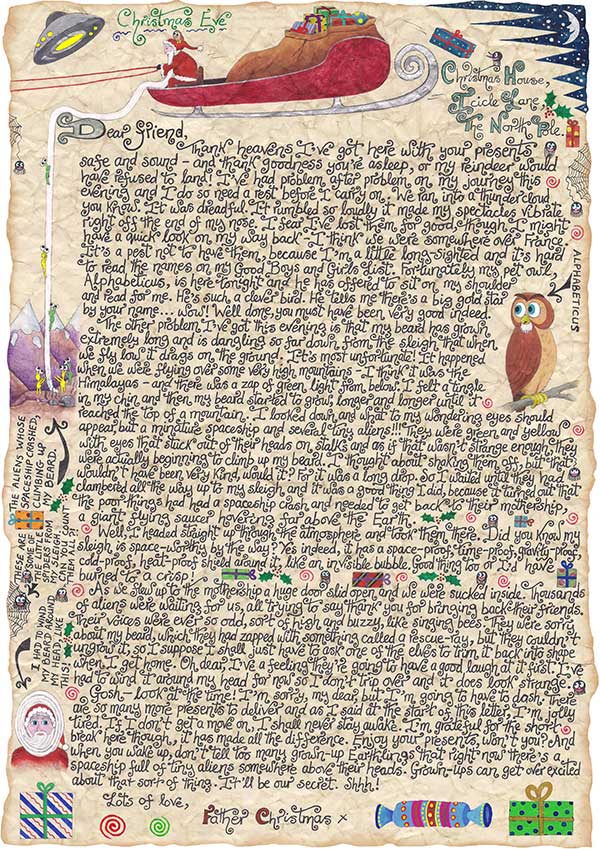 Christmas Eve
Christmas House,
Icicle Lane,
The North Pole.
Dear Friend,
Thank heavens I've got here with your presents
safe and sound - and thank goodness you're asleep, or my reindeer would
have refused to land! I've had problem after problem on my journey this
evening and I do so need a rest before I carry on. We ran into a thundercloud
you know. It was dreadful. It rumbled so loudly it made my spectacles vibrate
right off the end of my nose. I fear I've lost them for good, though I might
have a quick look on my way back - I think we were somewhere over France.
It's a pest not to have them, because I'm a little long-sighted and it's hard
to read the names on my Good Boys and Girls List. Fortunately my pet owl,
Alphabeticus, is here tonight and he has offered to sit on my shoulder
and read for me. He's such a clever bird. He tells me there's a big gold star
by your name... wow! Well done, you must have been very good indeed.
The other problem I've got this evening is that my beard has grown
extremely long and is dangling so far down from the sleigh that when
we fly low it drags on the ground. It's most unfortunate! It happened
when we were flying over some very high mountains - I think it was the
Himalayas - and there was a zap of green light from below. I felt a tingle
in my chin and then my beard started to grow, longer and longer until it
reached the top of a mountain. I looked down and what to my wondering eyes should
appear but a miniature spaceship and several tiny aliens!!! They were green and yellow
with eyes that stuck out of their heads on stalks and as if that wasn't strange enough, they
were actually beginning to climb up my beard. I thought about shaking them off, but that
wouldn't have been very kind, would it? For it was a long drop. So I waited until they had
clambered all the way up to my sleigh, and it was a good thing I did, because it turned out that
the poor things had had a spaceship crash and needed to get back to their mothership,
a giant flying saucer hovering far above the Earth.
Well, I headed straight up through the atmosphere and took them there. Did you know my
sleigh is space-worthy by the way? Yes indeed, it has a space-proof, time-proof, gravity-proof,
cold-proof, heat-proof shield around it like an invisible bubble. Good thing too or I'd have
burned to a crisp!
As we flew up to the mothership a huge door slid open and we were sucked inside. Thousands
of aliens were waiting for us, all trying to say thank you for bringing back their friends.
Their voices were ever so odd, sort of high and buzzy, like singing bees. They were sorry
about my beard, which they had zapped with something called a rescue-ray, but they couldn't
ungrow it, so I suppose I shall just have to ask one of the elves to trim it back into shape
when I get home. Oh dear, I've a feeling they're going to have a good laugh at it first. I've
had to wind it around my head for now so I don't trip over and it does look strange.
Gosh - look at the time! I'm sorry, my dear but I'm going to have to dash. There
are so many more presents to deliver and as I said at the start of this letter, I'm jolly
tired. If I don't get a move on, I shall never stay awake. I'm grateful for the short
break here though, it has made all the difference. Enjoy your presents, won't you? And
when you wake up, don't tell too many grown-up Earthlings that right now there's a
spaceship full of tiny aliens somewhere above their heads. Grown-ups can get over excited
about that sort of thing. It'll be our secret. Shhh!
Lots of love,
Father Christmas x
ALPHABETICUS
THESE ARE
SOME OF
THE LITTLE
RIDERS FROM
MY BEARD.
CAN YOU COUNT
THEM ALL?!
THE ALIENS WHOSE
SPACESHIP CRASHED,
CLIMBING UP
MY BEARD.
I HAD TO WIND
MY BEARD AROUND
MY HEAD LIKE
THIS!